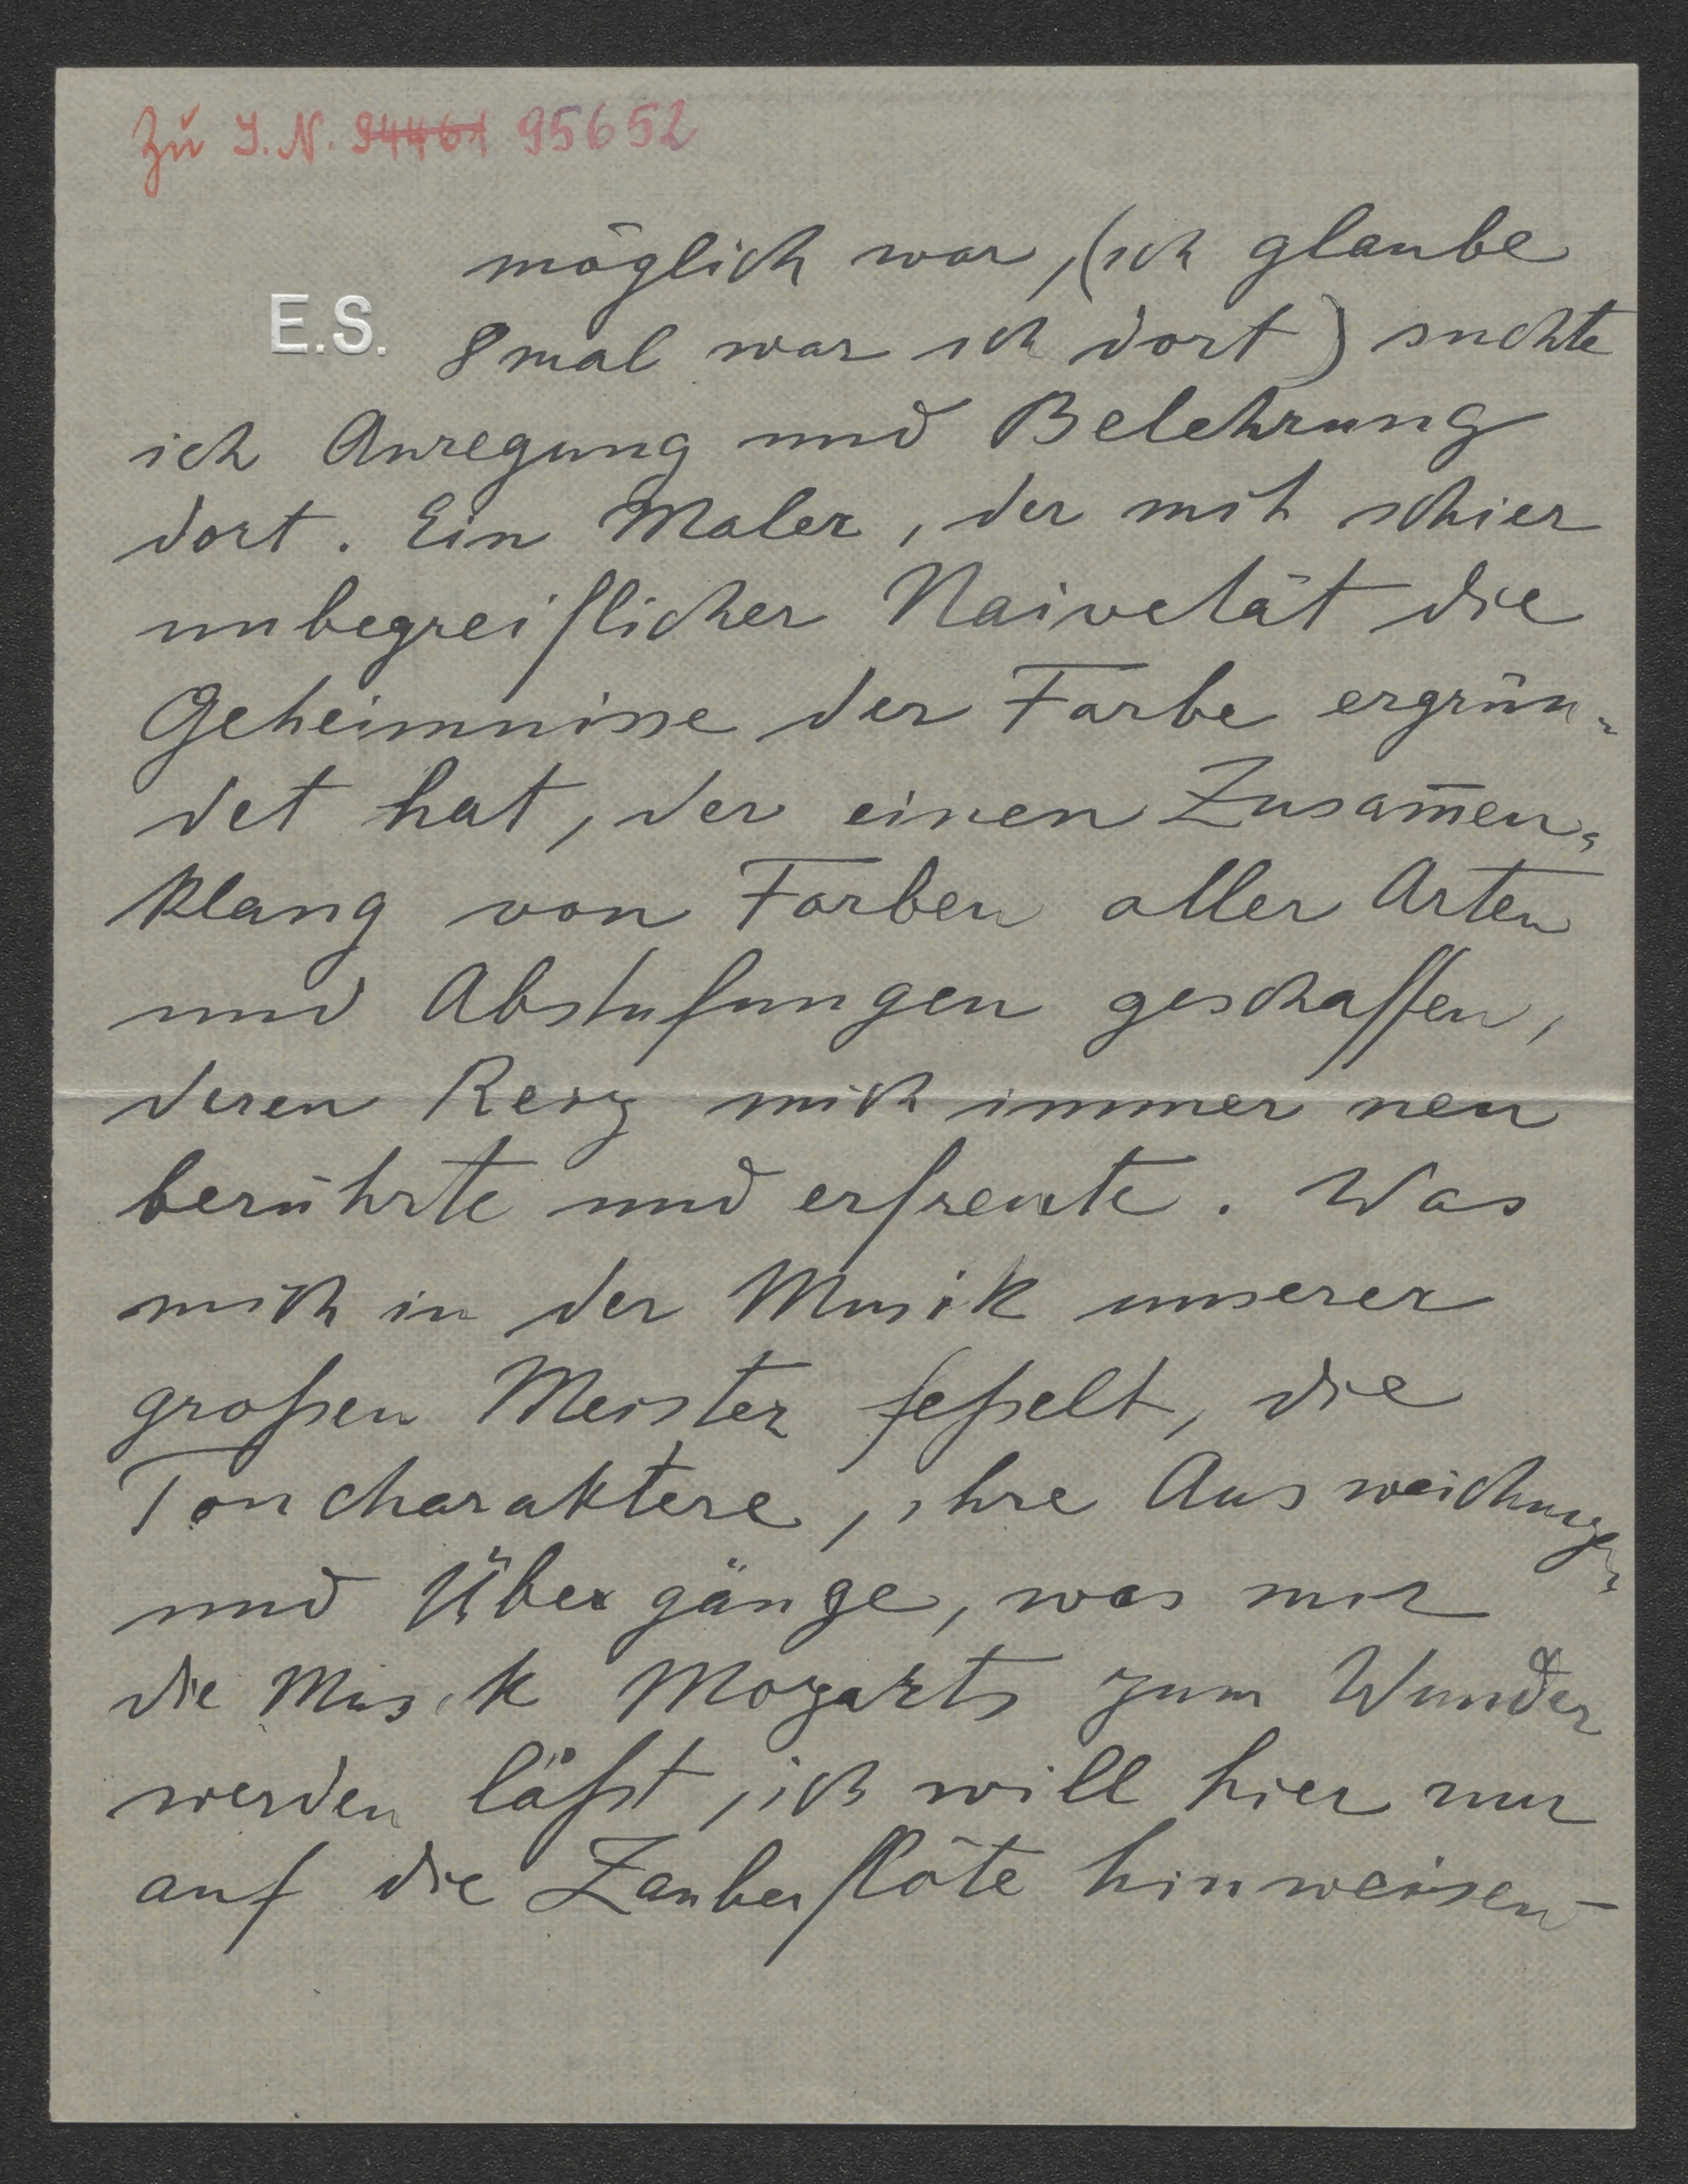 Zu I.N. 94461 95652
möglich war, (ich glaube
E.S.
8mal war ich dort) suchte
ich Anregung und Belehrung
dort. Ein Maler, der mit schier
unbegreiflicher Naivetät die
Geheimnisse der Farbe ergrün-
det hat, der einen Zusam̄en-
klang von Farben aller Arten
und Abstufungen geschaffen,
deren Reiz mich immer neu
berührte und erfreute. Was
mich in der Musik unserer
großen Meister feßelt, die
Toncharaktere, ihre Ausweichungen
und Übergänge, was mir
die Musik Mozarts zum Wunder
werden läßt, ich will hier nur
auf die Zauberflöte hinweisen –